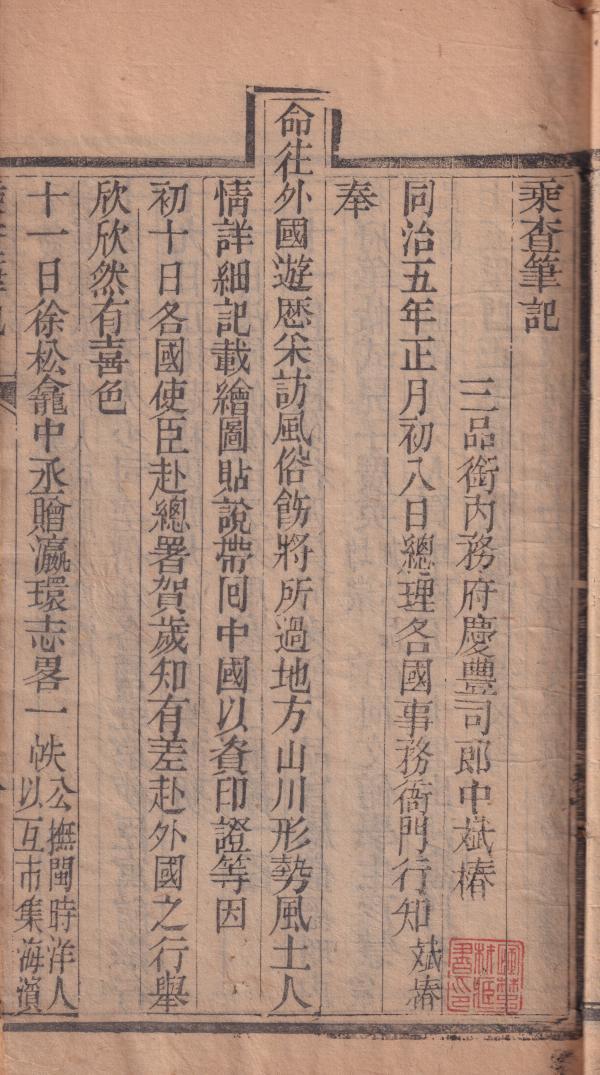 乘查筆記
三品銜內務府慶豐司郎中斌椿
同治五年正月初八日總理各國事務衙門行知斌椿
奉
命往外國遊歷采訪風俗飭將所過地方山川形勢風土人
情詳細記載繪圖貼說帶回中國以資印證等因
初十日各國使臣赴總署賀歲知有差赴外國之行舉
欣欣然有喜色
十一日徐松龕中丞贈瀛環志畧一帙公撫閩時洋人以互市集海濱